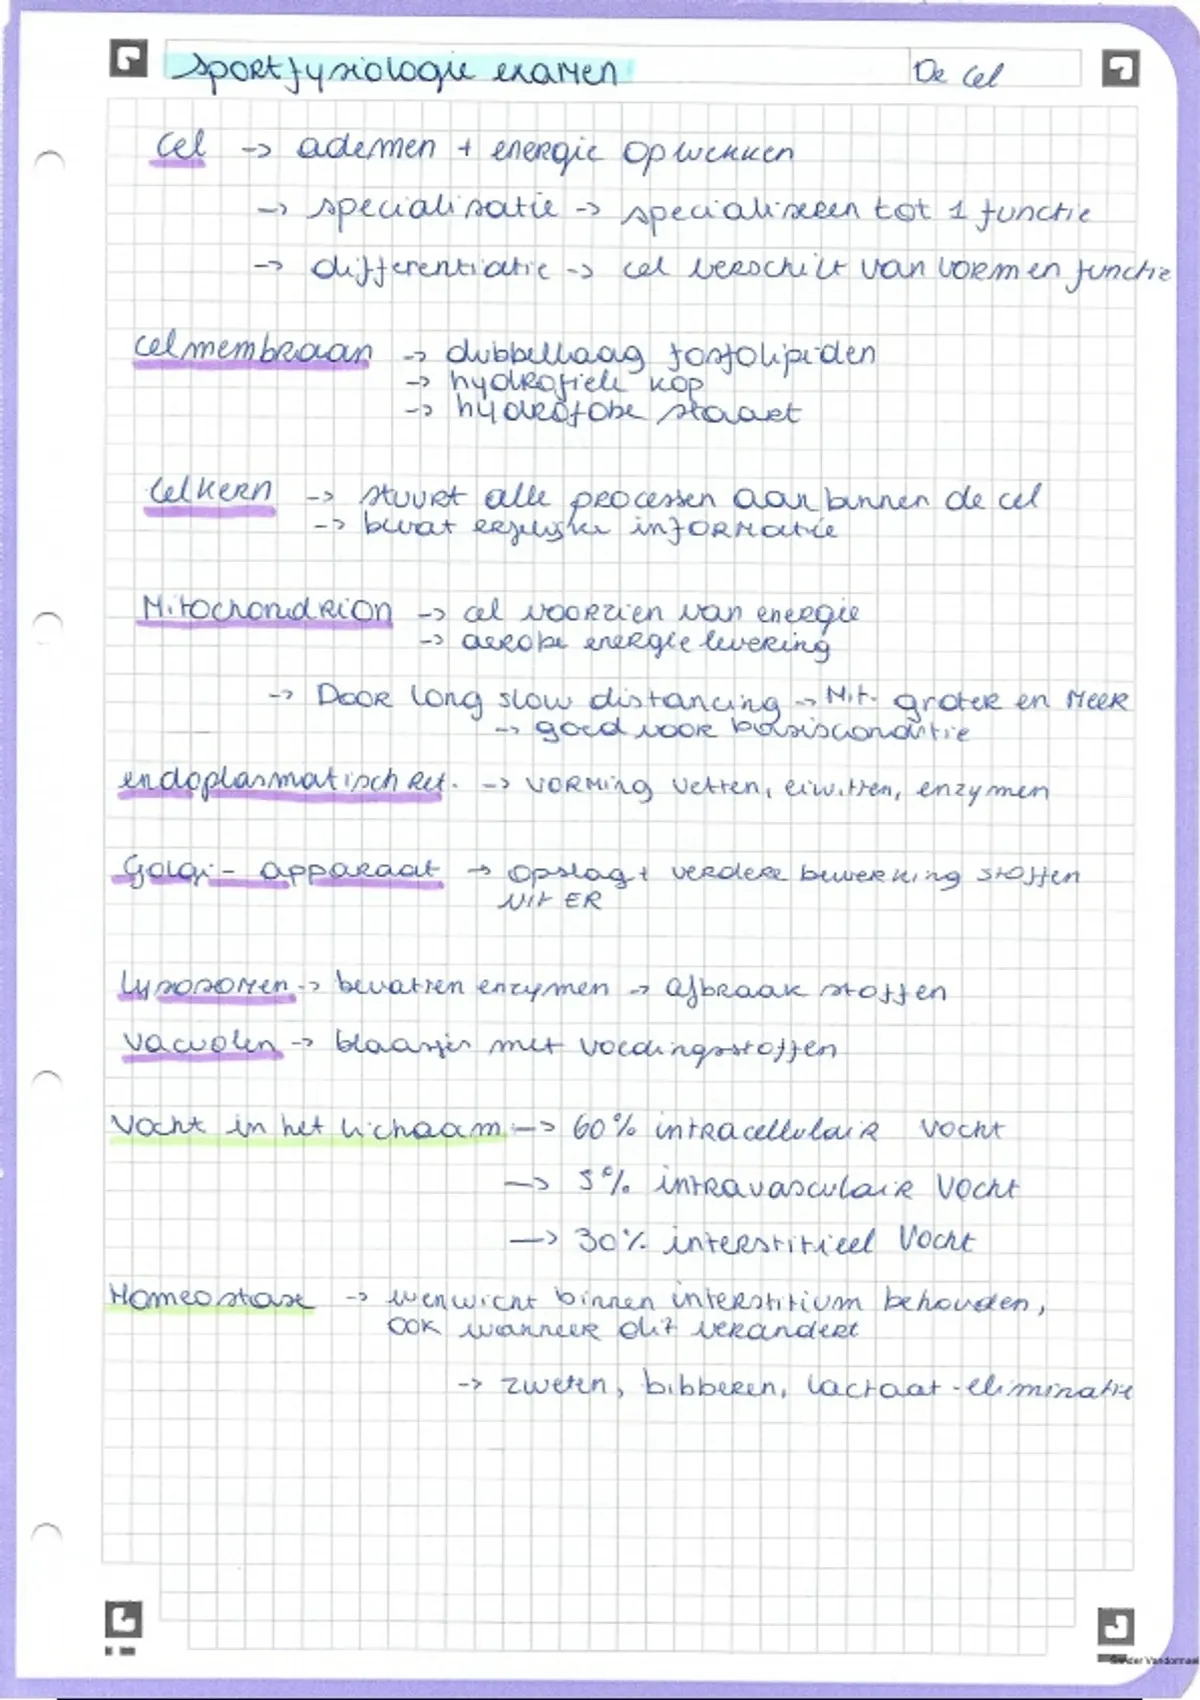 Sportfysiologie examen
De cel
Cel -> ademen + energie opwekken
-> specialisatie -> specialiseren tot 1 functie
-> differentiatie -> cel verschilt van vorm en functie
Celmembraan -> dubbellaag fosfolipiden
-> hydrofiele kop
-> hydrofobe staart
Celkern -> stuurt alle processen aan binnen de cel
-> bevat erfelijke informatie
Mitochondrion -> cel voorzien van energie
-> aerobe energielevering
-> Door long slow distancing -> Mit. groter en meer
-> goed voor basisconditie
endoplasmatisch ret. -> vorming vetten, eiwitten, enzymen
Golgi-apparaat -> opslag + verdere bewerking stoffen
uit ER
Lysosomen -> bevatten enzymen -> afbraak stoffen
Vacuolen -> blaasjes met voedingsstoffen
Vocht in het lichaam -> 60% intracellulair vocht
-> 5% intravasculair vocht
-> 30% interstitieel vocht
Homeostase -> evenwicht binnen interstitium behouden,
ook wanneer dit verandert
-> zweten, bibberen, lactaat-eliminatie